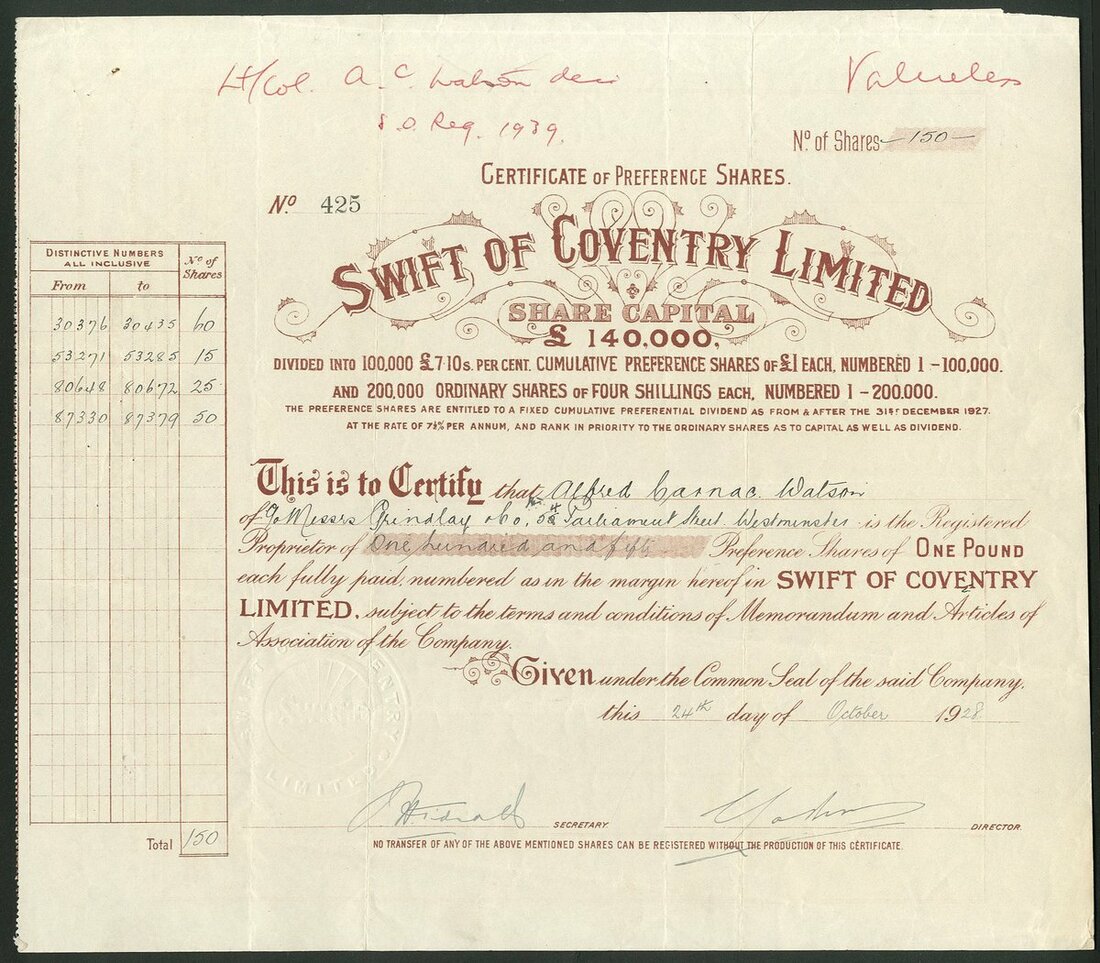 Lt/Col. A. C. Watson
S.O. Reg. 1939.
Valueless
No. of Shares —150—
CERTIFICATE OF PREFERENCE SHARES.
No. 425
SWIFT OF COVENTRY LIMITED
SHARE CAPITAL
£ 140,000,
DIVIDED INTO 100,000 £7·10s. PER CENT. CUMULATIVE PREFERENCE SHARES OF £1 EACH, NUMBERED 1 – 100,000.
AND 200,000 ORDINARY SHARES OF FOUR SHILLINGS EACH, NUMBERED 1 – 200,000.
THE PREFERENCE SHARES ARE ENTITLED TO A FIXED CUMULATIVE PREFERENTIAL DIVIDEND AS FROM & AFTER THE 31ST DECEMBER 1927.
AT THE RATE OF 7½% PER ANNUM, AND RANK IN PRIORITY TO THE ORDINARY SHARES AS TO CAPITAL AS WELL AS DIVIDEND.
DISTINCTIVE NUMBERS ALL INCLUSIVE No. of Shares
From to
30376 30435 60
53271 53285 15
80648 80672 25
87330 87379 50
Total 150
This is to Certify that Alfred Carnac Watson
of c/o Messrs Grindlay & Co, 54 Parliament Street Westminster is the Registered
Proprietor of One hundred and fifty Preference Shares of ONE POUND
each fully paid, numbered as in the margin hereof in SWIFT OF COVENTRY
LIMITED, subject to the terms and conditions of Memorandum and Articles of
Association of the Company.
Given under the Common Seal of the said Company,
this 24th day of October 1928.
SECRETARY.
DIRECTOR.
NO TRANSFER OF ANY OF THE ABOVE MENTIONED SHARES CAN BE REGISTERED WITHOUT THE PRODUCTION OF THIS CERTIFICATE.